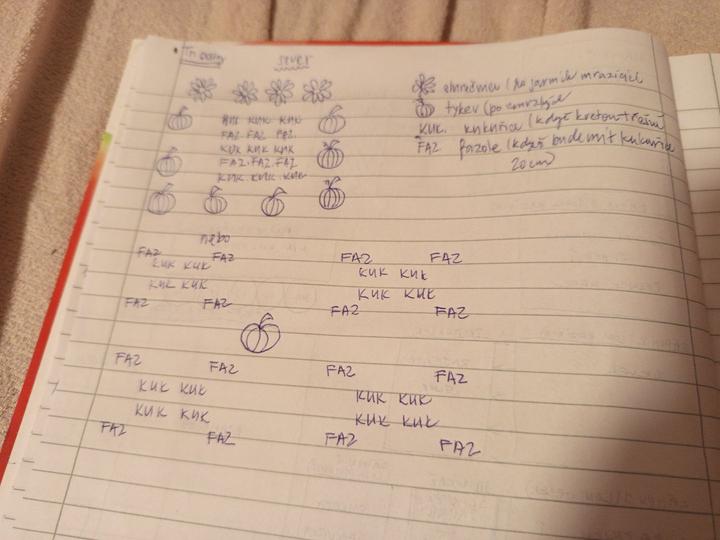 Tři sestry
sever
slunečnice (po jarních mrazících
tykev (po zmrzlých
KUK. kukuřice (když kvetou třešně
FAZ fazole (když bude mít kukuřice
20 cm)
KUK KUK KUK
FAZ FAZ FAZ
KUK KUK KUK
FAZ. FAZ. FAZ
KUK. KUK. KUK
nebo
FAZ FAZ FAZ FAZ
KUK KUK KUK KUK
KUK KUK KUK KUK
FAZ FAZ FAZ FAZ
FAZ FAZ FAZ FAZ
KUK KUK KUK KUK
KUK KUK KUK KUK
FAZ FAZ FAZ FAZ